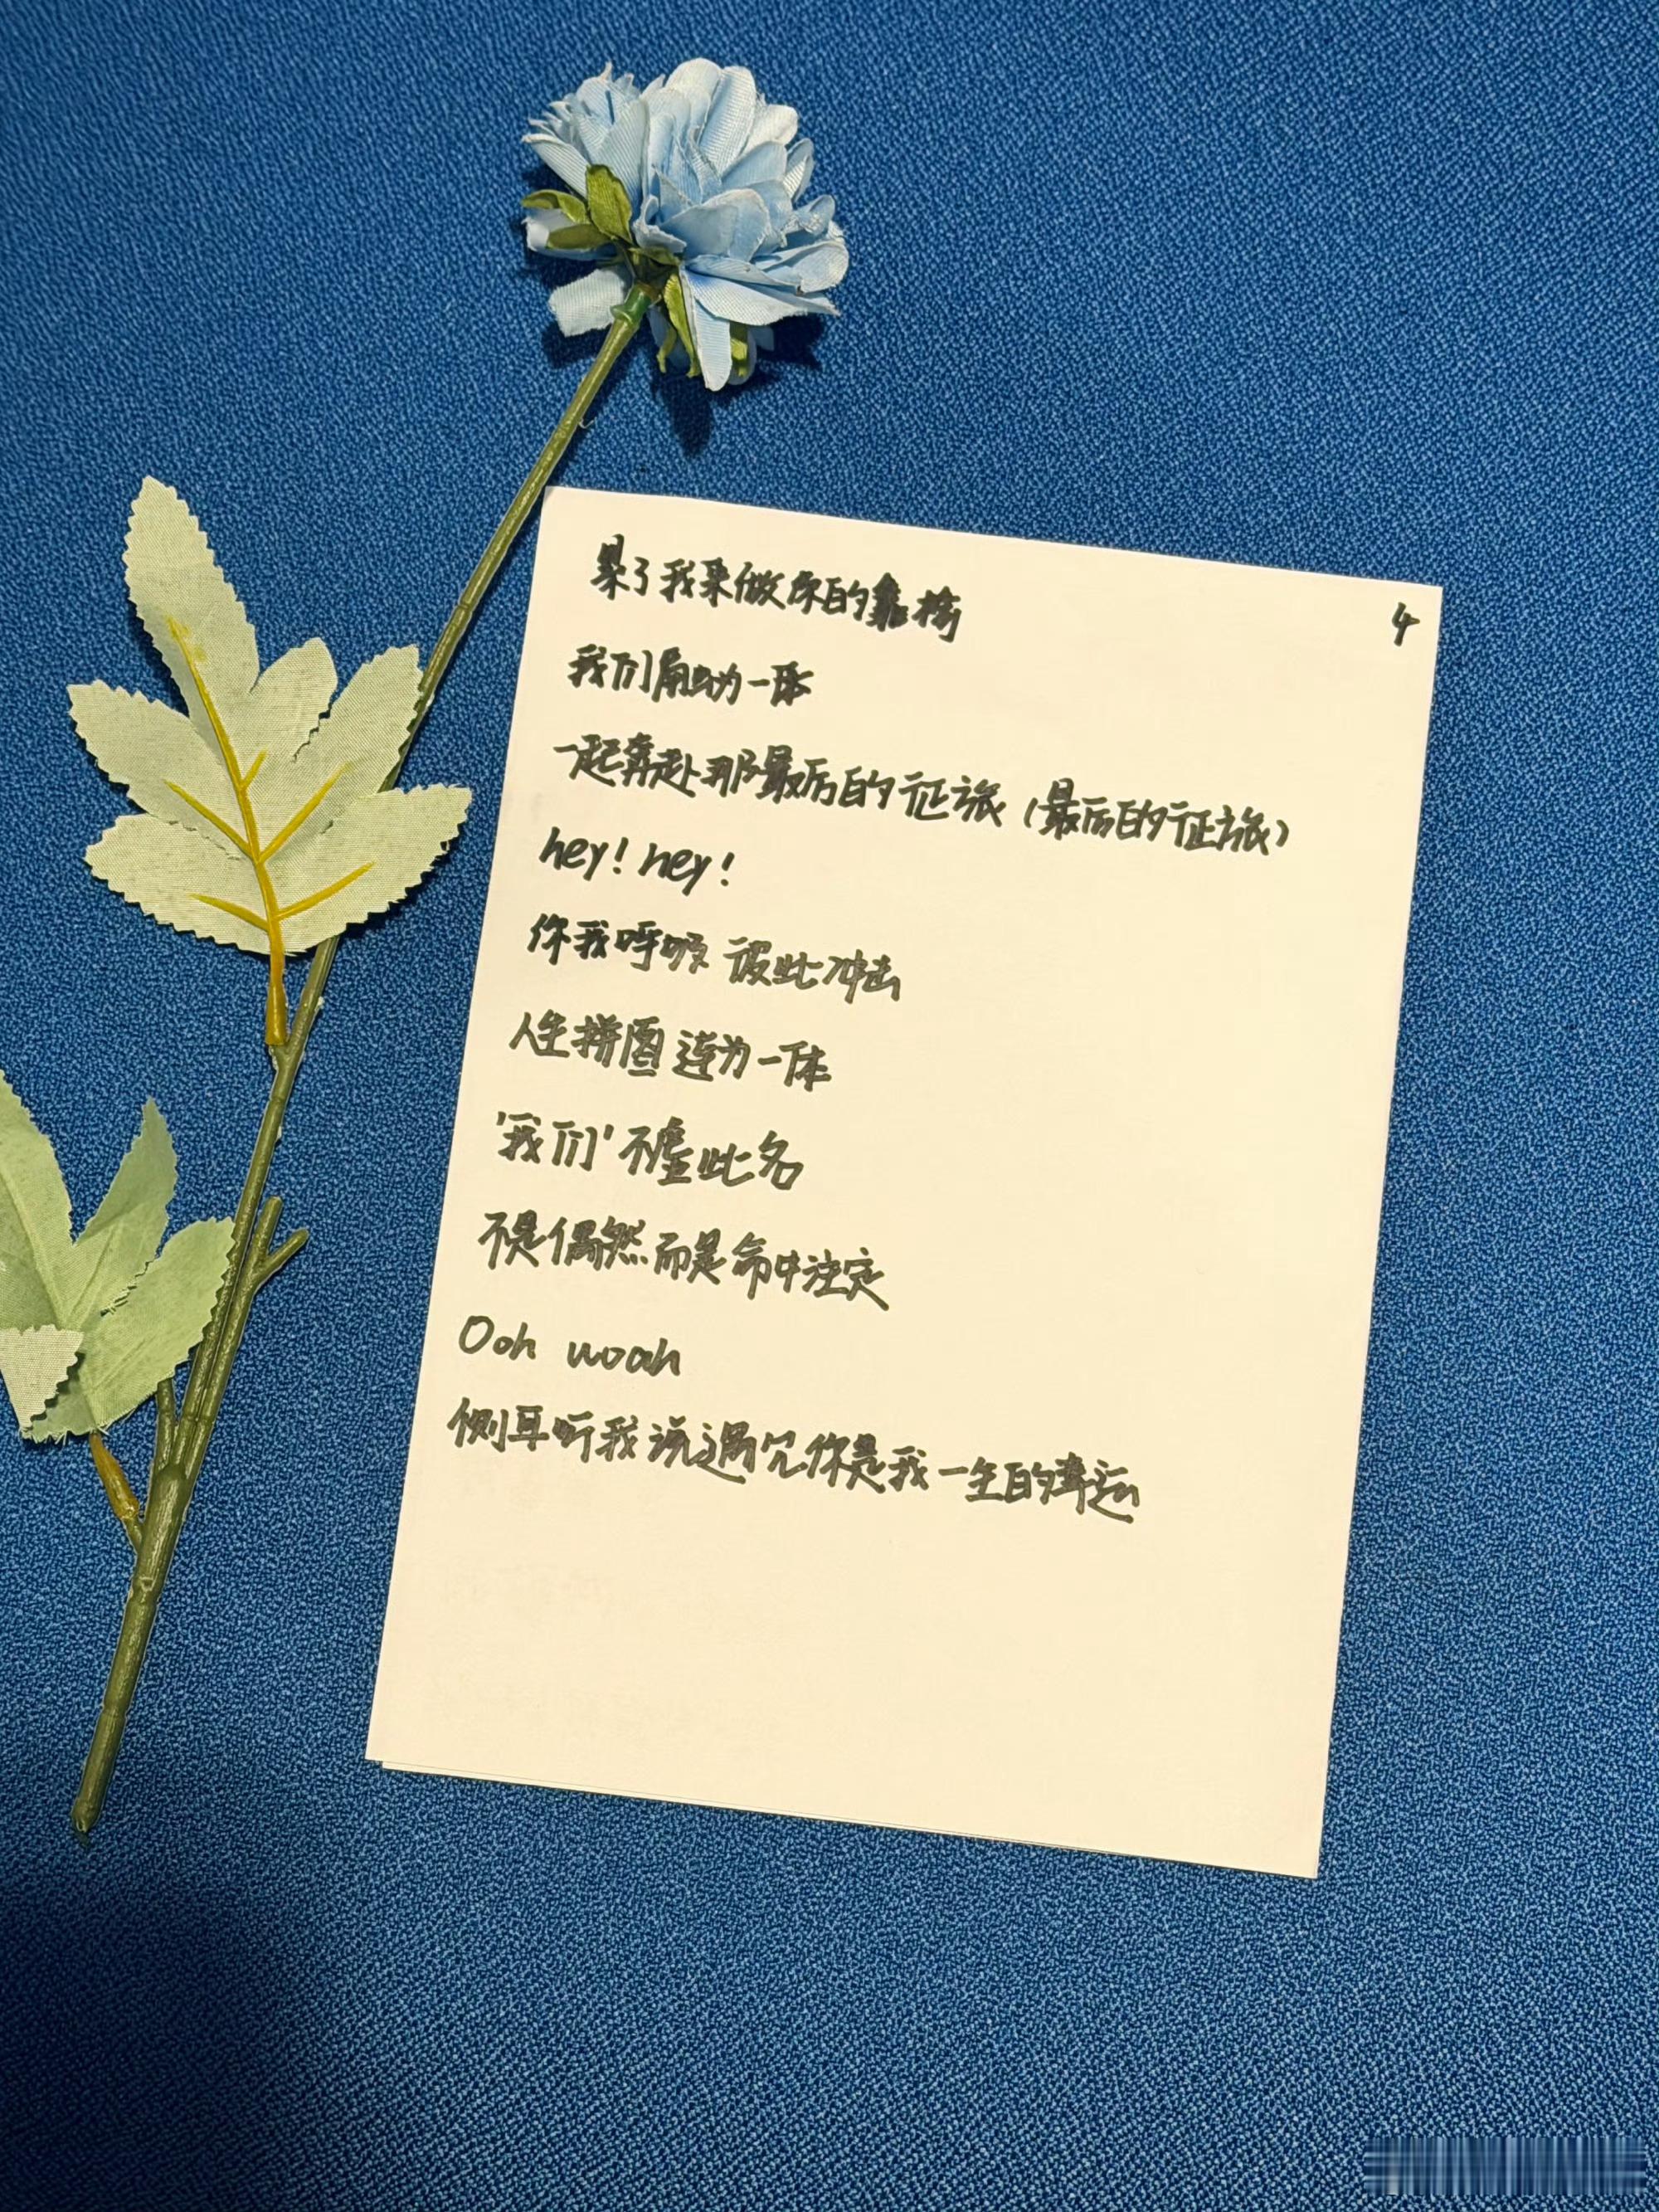 累了我来做你的靠椅
4
我们角力一体
一起奔赴那最后的征旅（最后的征旅）
hey！hey！
你我呼吸 彼此冲击
人生拼图 连为一体
'我们'不虚此名
不是偶然而是命中注定
Ooh woah
侧耳听我说遇见你是我一生的幸运